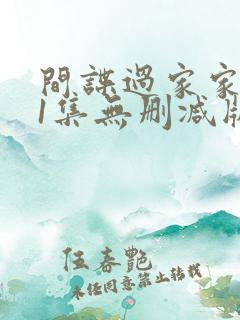 間諜過家家
1集無刪減版
伍春艷
未经同意禁止转载